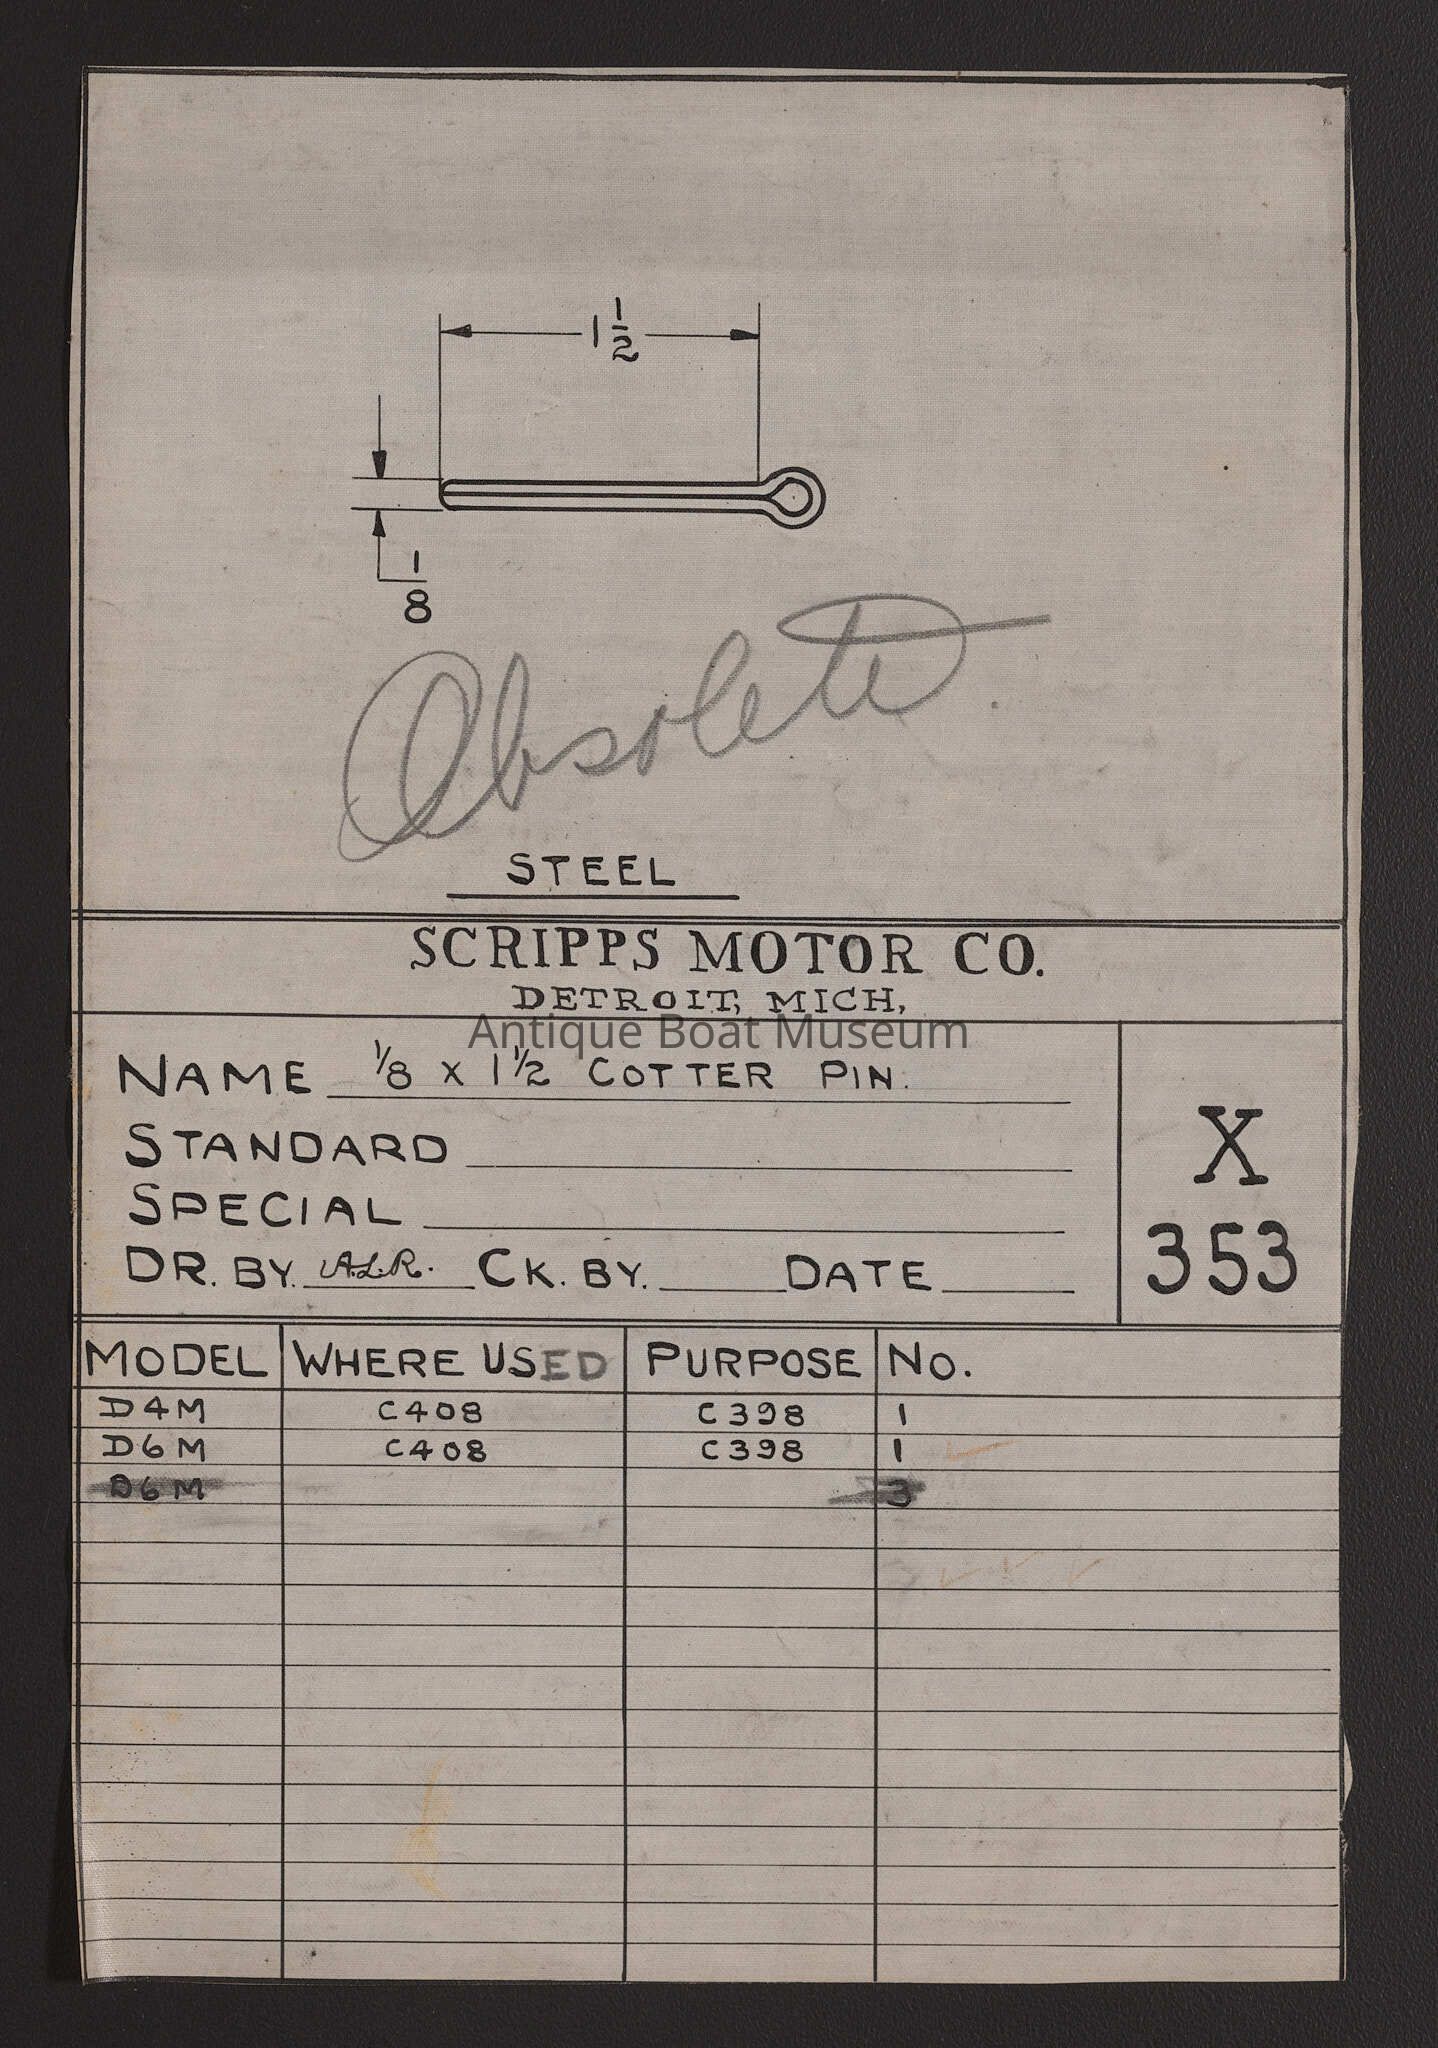 1 1/2
1/8
Obsolete.
STEEL
SCRIPPS MOTOR CO.
DETROIT, MICH,
Antique Boat Museum
NAME 1/8 X 1 1/2 COTTER PIN.
STANDARD
SPECIAL
DR. BY. A.L.R. CK. BY. DATE
X
353
MODEL WHERE USED PURPOSE NO.
D4M C408 C398 1
D6M C408 C398 1
D6M 3